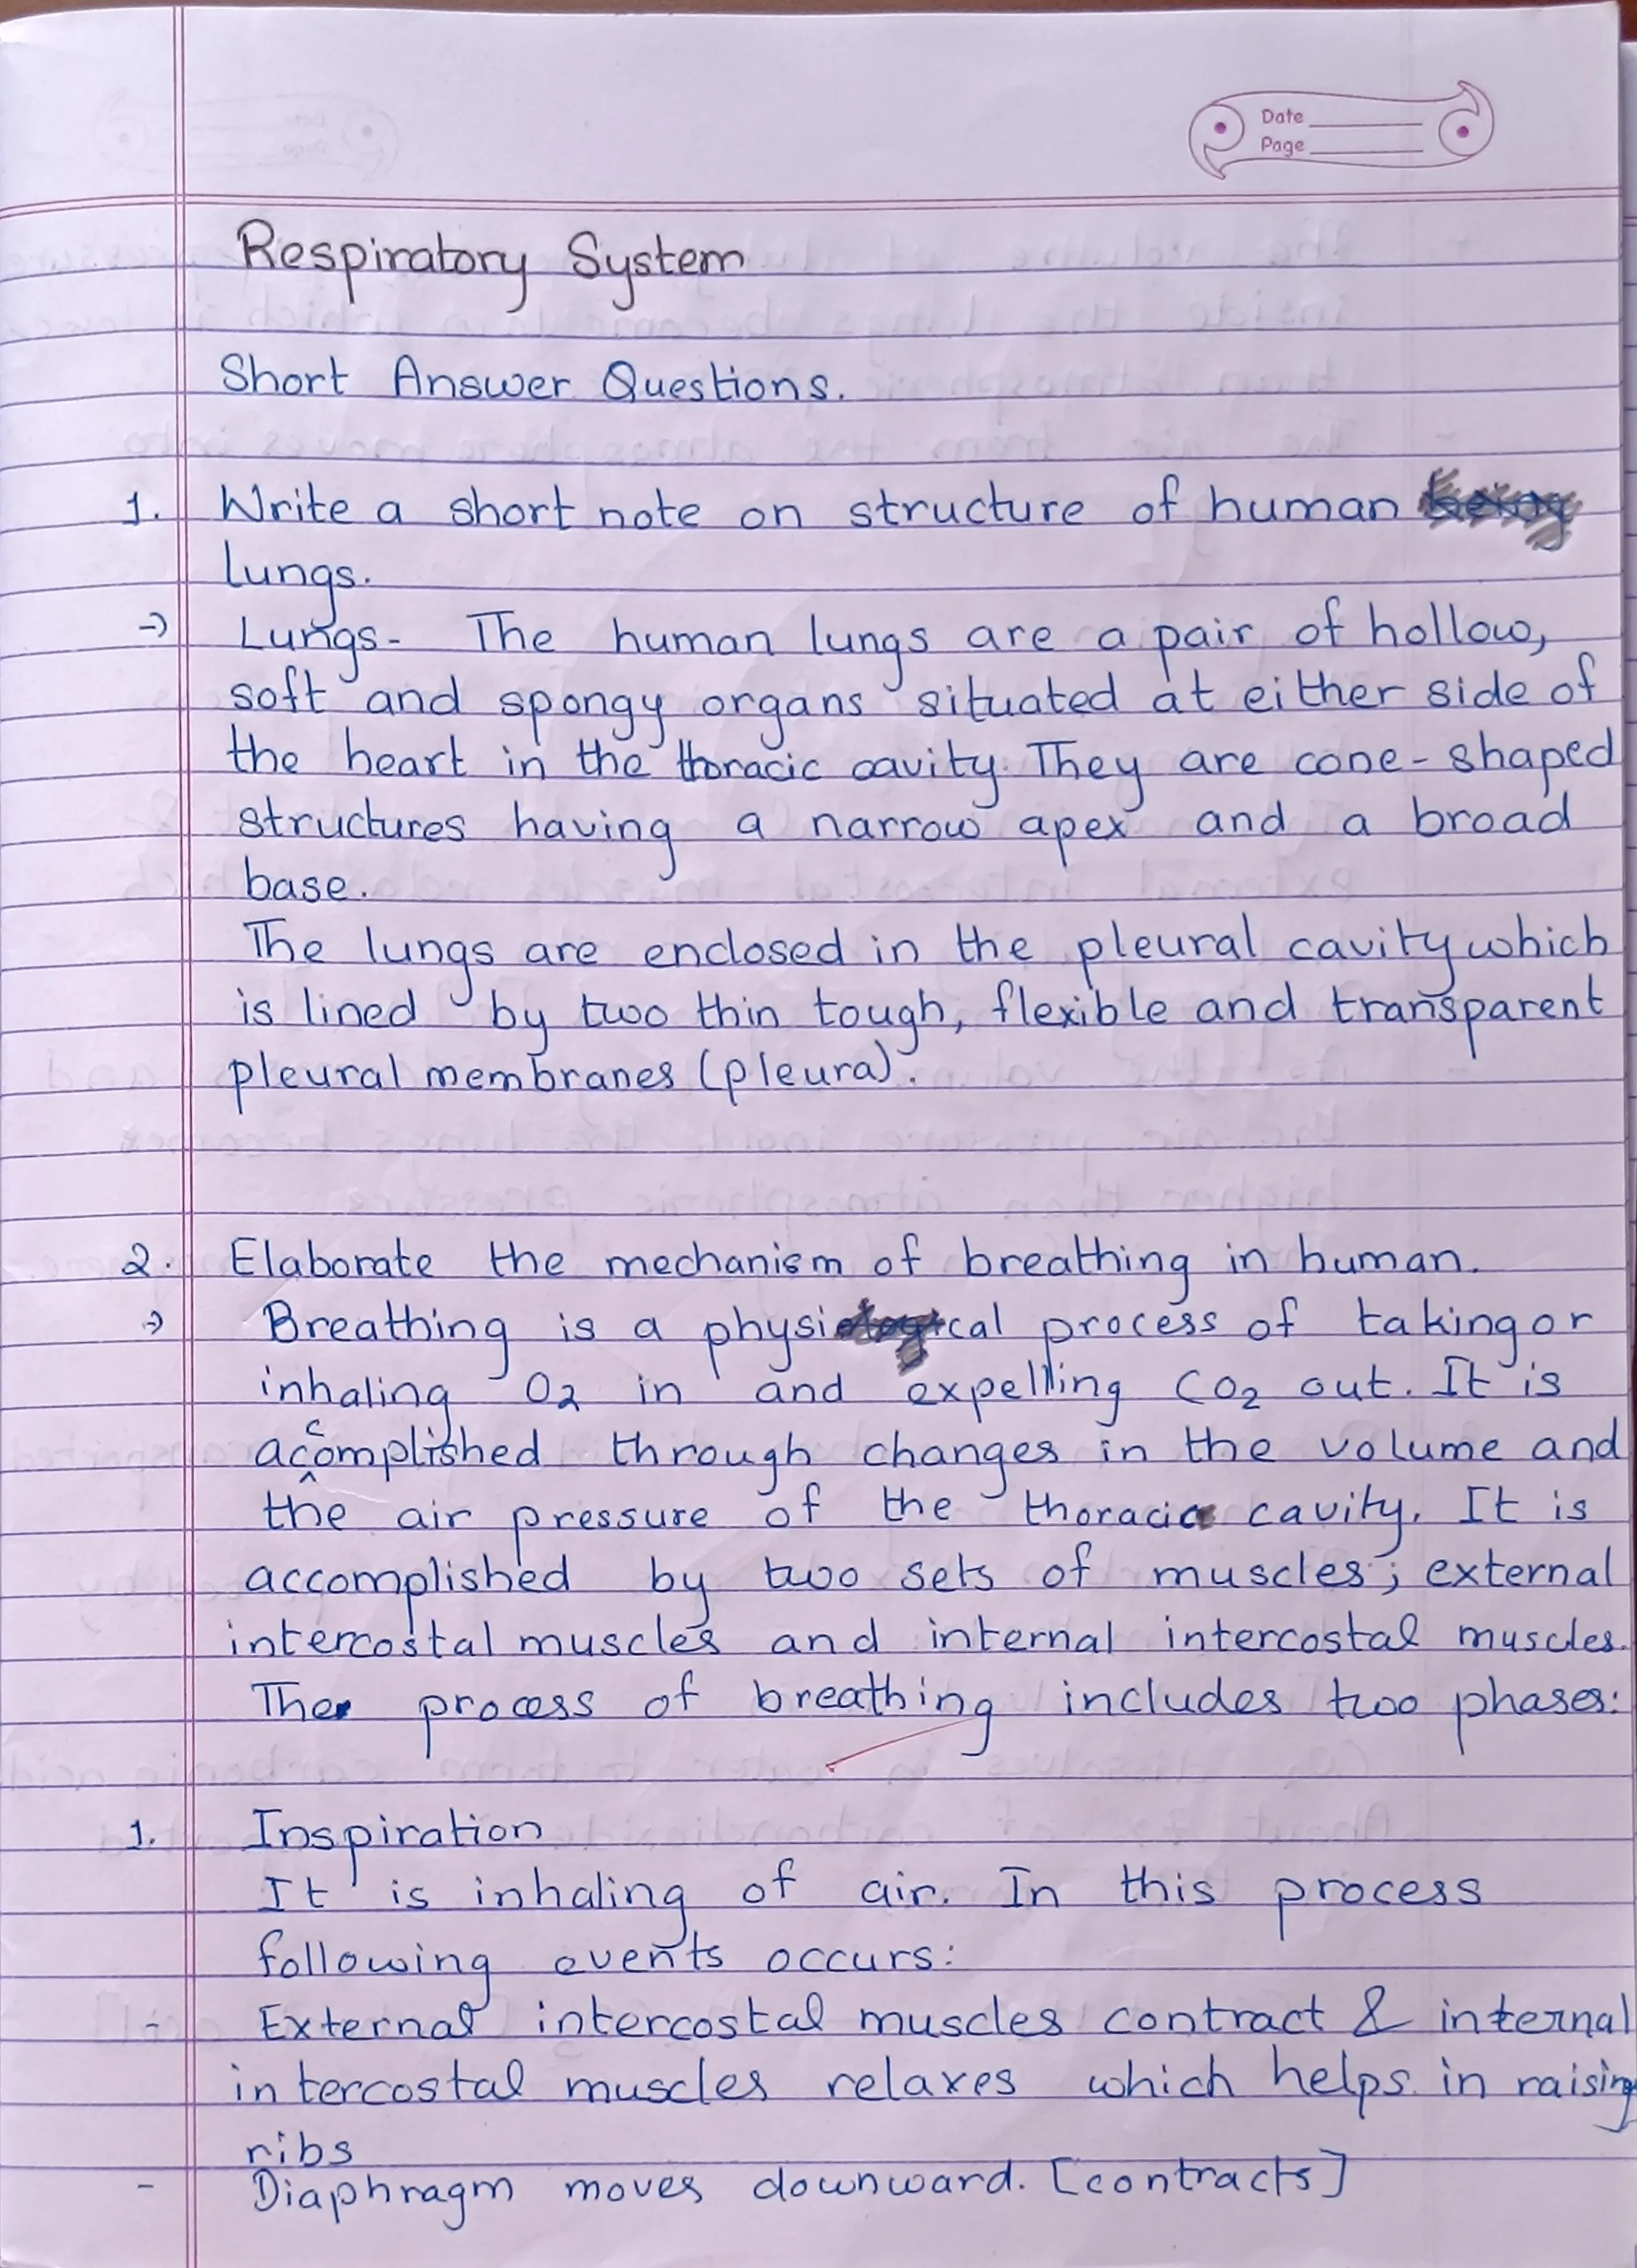 Date
Page
Respiratory System
Short Answer Questions.
1. Write a short note on structure of human
lungs.
→ Lungs- The human lungs are a pair of hollow,
soft and spongy organs situated at either side of
the heart in the thoracic cavity. They are cone-shaped
structures having a narrow apex and a broad
base.
The lungs are enclosed in the pleural cavity which
is lined by two thin tough, flexible and transparent
pleural membranes (pleura).
2. Elaborate the mechanism of breathing in human.
→ Breathing is a physical process of taking or
inhaling O2 in and expelling CO2 out. It is
accomplished through changes in the volume and
the air pressure of the thoracic cavity. It is
accomplished by two sets of muscles; external
intercostal muscles and internal intercostal muscles.
The process of breathing includes two phases:
1. Inspiration
It is inhaling of air. In this process
following events occurs:
- External intercostal muscles contract & internal
intercostal muscles relaxes which helps in raising
ribs
- Diaphragm moves downward. [contracts]